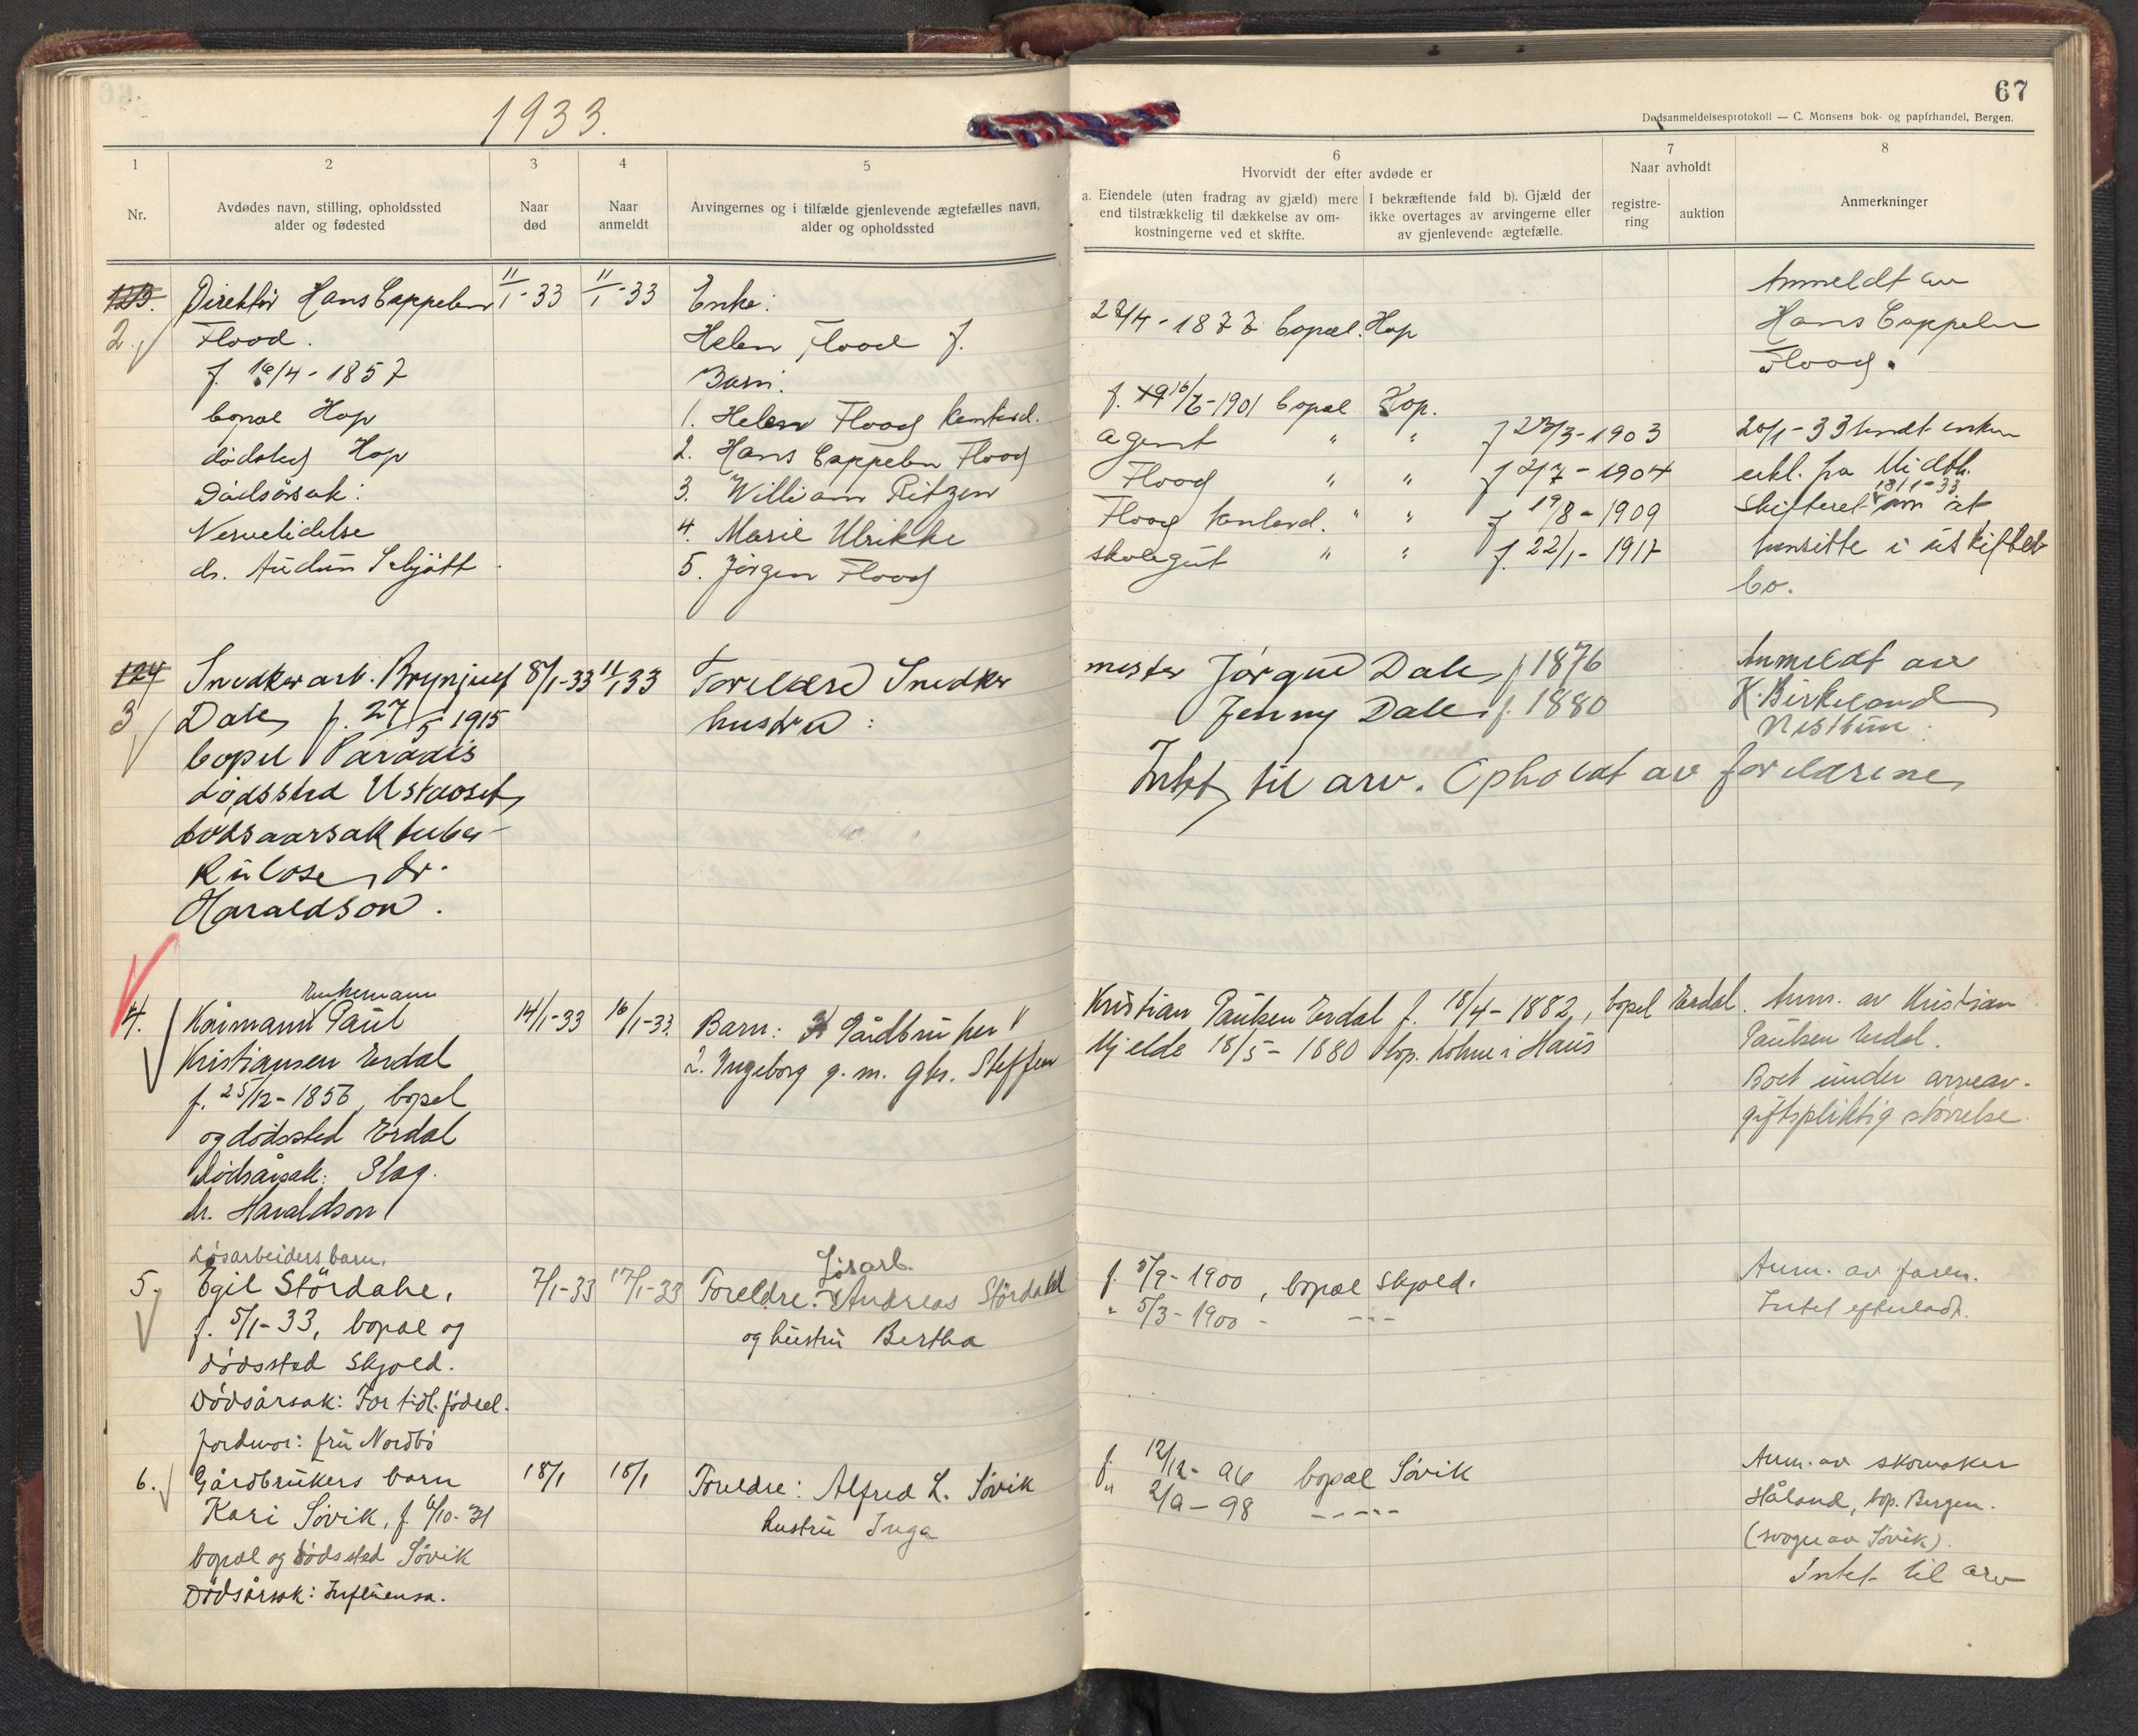 1933.
67
Dødsanmeldelsesprotokoll — C. Monsens bok- og papirhandel, Bergen.
1
2
3
4
5
6
7
8
Nr.
Avdødes navn, stilling, opholdssted
alder og fødested
Naar
død
Naar
anmeldt
Arvingernes og i tilfælde gjenlevende ægtefælles navn,
alder og opholdssted
Hvorvidt der efter avdøde er
a. Eiendele (uten fradrag av gjæld) mere
end tilstrækkelig til dækkelse av om-
kostningerne ved et skifte.
I bekræftende fald b). Gjæld der
ikke overtages av arvingerne eller
av gjenlevende ægtefælle.
Naar avholdt
registre-
ring
auktion
Anmerkninger
123.
2.
Direktør Hans Cappelen
Flood.
f. 16/4 - 1857
bopæl Hop
dødsted Hop
Dødsårsak:
Nervelidelse
dr. Audun Schjött
11/1-33
11/1-33
Enke:
Helen Flood f.
Barn:
1. Helen Flood kontord.
2. Hans Cappelen Flood
3. William Ritzen
4. Marie Ulrikke
5. Jörgen Flood
28/4-1877 bopæl. Hop
f. 16/6-1901 bopæl Hop.
agent " " f 23/3-1903
Flood " " f 2/7-1904
Flood kontord. " " f 19/8-1909
skolegut " " f. 22/1-1917
Anmeldt av
Hans Cappelen
Flood.
20/1-33 sendt enken
erkl. fra Midth.
18/1-33
skifteret om at
hensitte i uskiftet
bo.
124
3
Snedkerarb. Brynjulf
Dale, f. 27/5 1915
bopel Paradis
dødssted Ustaoset,
dødsaarsak tuber-
kulose, dr.
Haraldson.
8/1-33
11/1 33
Forældre Snedker
hustru:
mester Jørgen Dale, f 1876
Jenny Dale, f. 1880
Intet til arv. Opholdt av forældrene,
Anmeldt av
K. Birkeland
Nesttun.
4.
Enkemann
Kårmann Paul
Kristiansen Erdal
f. 25/12-1856, bopel
og dødssted Erdal
Dødsårsak: Slag.
dr. Haraldson
14/1-33
16/1-33.
Barn: Gårdbruker
2. Ingeborg g. m. gbr. Steffen
Kristian Paulsen Erdal f. 18/4-1882, bopel Erdal.
Mjelde 18/5-1880 bop. i Haus
Anm. av Kristian
Paulsen Erdal.
Boet under arveav-
giftspliktig størrelse.
5.
Løsarbeiders barn.
Egil Stördahe,
f. 5/1-33, bopæl og
dødssted Skjold.
Dødsårsak: For tidl. fødsel.
Jordmor: fru Nordbö
7/1-33
17/1-33
Løsarb.
Foreldre: Andreas Stördahl
og hustru Bertha
f. 5/9-1900, bopæl Skjold.
" 5/3-1900 - ---
Anm. av faren.
Intet efterladt.
6.
Gårdbrukers barn
Kari Søvik, f. 6/10-31
bopæl og dødssted Søvik
Dødsårsak: Influensa.
18/1
18/1
Foreldre: Alfred L. Søvik
hustru Inga
f. 12/12-96 bopæl Søvik
" 2/9-98 -----
Anm. av skomaker
Håland, bop. Bergen.
(svoger av Søvik).
Intet til arv